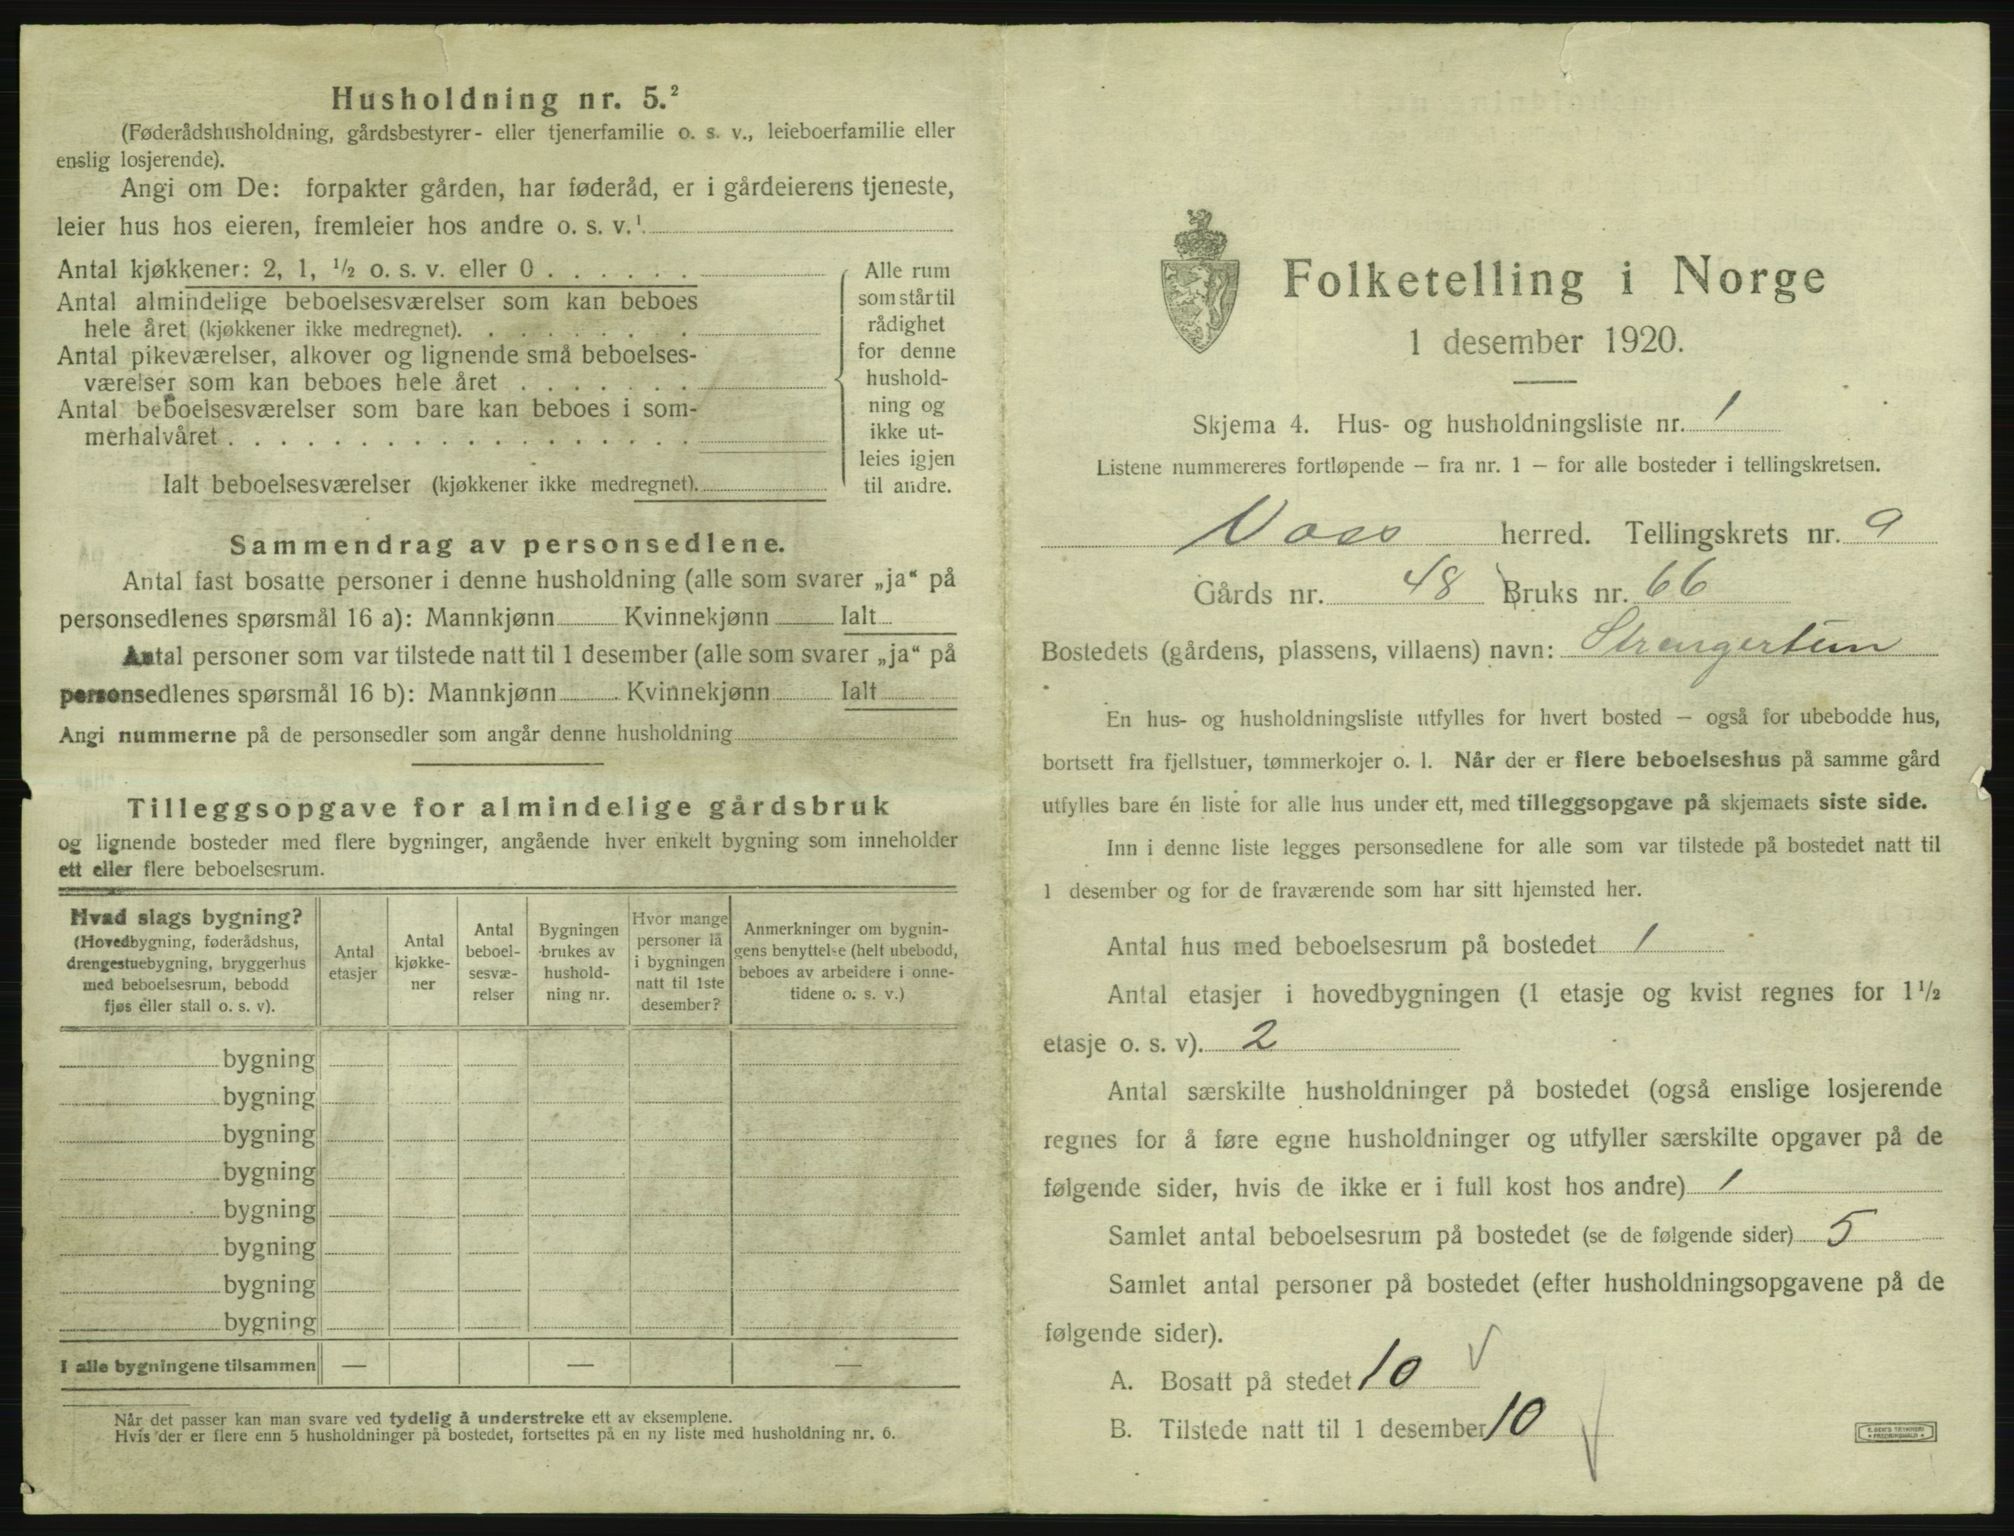 Husholdning nr. 5.²
(Føderådshusholdning, gårdsbestyrer- eller tjenerfamilie o. s. v., leieboerfamilie eller
enslig losjerende).
Angi om De: forpakter gården, har føderåd, er i gårdeierens tjeneste,
leier hus hos eieren, fremleier hos andre o. s. v.¹
Antal kjøkkener: 2, 1, ½ o. s. v. eller 0 . . . . . .
Antal almindelige beboelsesværelser som kan beboes
hele året (kjøkkener ikke medregnet). . . . . . . . .
Antal pikeværelser, alkover og lignende små beboelses-
værelser som kan beboes hele året . . . . . . .
Antal beboelsesværelser som bare kan beboes i som-
merhalvåret . . . . . . . . . . . . . . . . . .
Ialt beboelsesværelser (kjøkkener ikke medregnet).
Alle rum
som står til
rådighet
for denne
hushold-
ning og
ikke ut-
leies igjen
til andre.
Sammendrag av personsedlene.
Antal fast bosatte personer i denne husholdning (alle som svarer „ja“ på
personsedlenes spørsmål 16 a): Mannkjønn Kvinnekjønn Ialt
Antal personer som var tilstede natt til 1 desember (alle som svarer „ja“ på
personsedlenes spørsmål 16 b): Mannkjønn Kvinnekjønn Ialt
Angi nummerne på de personsedler som angår denne husholdning
Tilleggsopgave for almindelige gårdsbruk
og lignende bosteder med flere bygninger, angående hver enkelt bygning som inneholder
ett eller flere beboelsesrum.
Hvad slags bygning?
(Hovedbygning, føderådshus,
drengestuebygning, bryggerhus
med beboelsesrum, bebodd
fjøs eller stall o. s. v).
Antal
etasjer
Antal
kjøkke-
ner
Antal
beboel-
sesvæ-
relser
Bygningen
brukes av
hushold-
ning nr.
Hvor mange
personer lå
i bygningen
natt til 1ste
desember?
Anmerkninger om bygnin-
gens benyttelse (helt ubebodd,
beboes av arbeidere i onne-
tidene o. s. v.)
bygning
bygning
bygning
bygning
bygning
bygning
bygning
bygning
I alle bygningene tilsammen — — —
Når det passer kan man svare ved tydelig å understreke ett av eksemplene.
Hvis der er flere enn 5 husholdninger på bostedet, fortsettes på en ny liste med husholdning nr. 6.
Folketelling i Norge
1 desember 1920.
Skjema 4. Hus- og husholdningsliste nr. 1
Listene nummereres fortløpende — fra nr. 1 — for alle bosteder i tellingskretsen.
Voss herred. Tellingskrets nr. 9
Gårds nr. 48 Bruks nr. 66
Bostedets (gårdens, plassens, villaens) navn: Strengertun
En hus- og husholdningsliste utfylles for hvert bosted — også for ubebodde hus,
bortsett fra fjellstuer, tømmerkojer o. l. Når der er flere beboelseshus på samme gård
utfylles bare én liste for alle hus under ett, med tilleggsopgave på skjemaets siste side.
Inn i denne liste legges personsedlene for alle som var tilstede på bostedet natt til
1 desember og for de fraværende som har sitt hjemsted her.
Antal hus med beboelsesrum på bostedet 1
Antal etasjer i hovedbygningen (1 etasje og kvist regnes for 1½
etasje o. s. v). 2
Antal særskilte husholdninger på bostedet (også enslige losjerende
regnes for å føre egne husholdninger og utfyller særskilte opgaver på de
følgende sider, hvis de ikke er i full kost hos andre) 1
Samlet antal beboelsesrum på bostedet (se de følgende sider) 5
Samlet antal personer på bostedet (efter husholdningsopgavene på de
følgende sider).
A. Bosatt på stedet 10 √
B. Tilstede natt til 1 desember 10 √